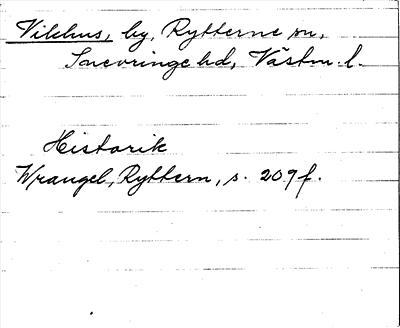 Vilhus, by, Rytterne sn,
Snevringe hd, Västm. l.
Historik
Wrangel, Ryttern, s. 209 f.